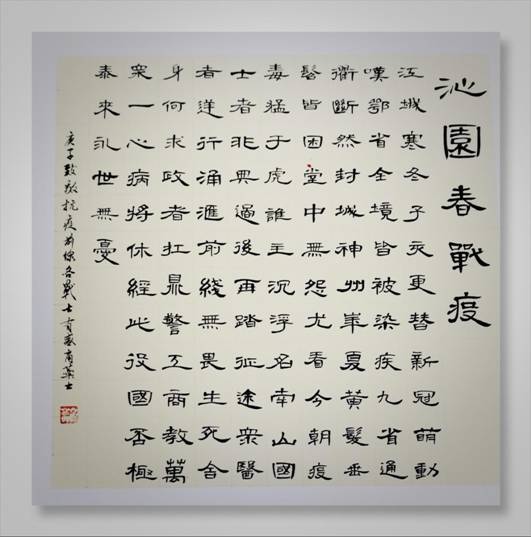 沁園春戰疫
江城寒冬子亥更替新冠萌動
嘆鄂省全境皆被染疾九省通
衢斷然封城神州華夏黃髮垂
髫皆困堂中無怨尤看今朝疫
毒猛于虎誰主沉浮名南山國
士者非典過後再踏征途眾醫
者逆行涌滙前綫無畏生死舍
身何求政者扛鼎警工商教萬
眾一心病將休經此役國否極
泰來永世無憂
庚子致敬抗疫前線各戰士